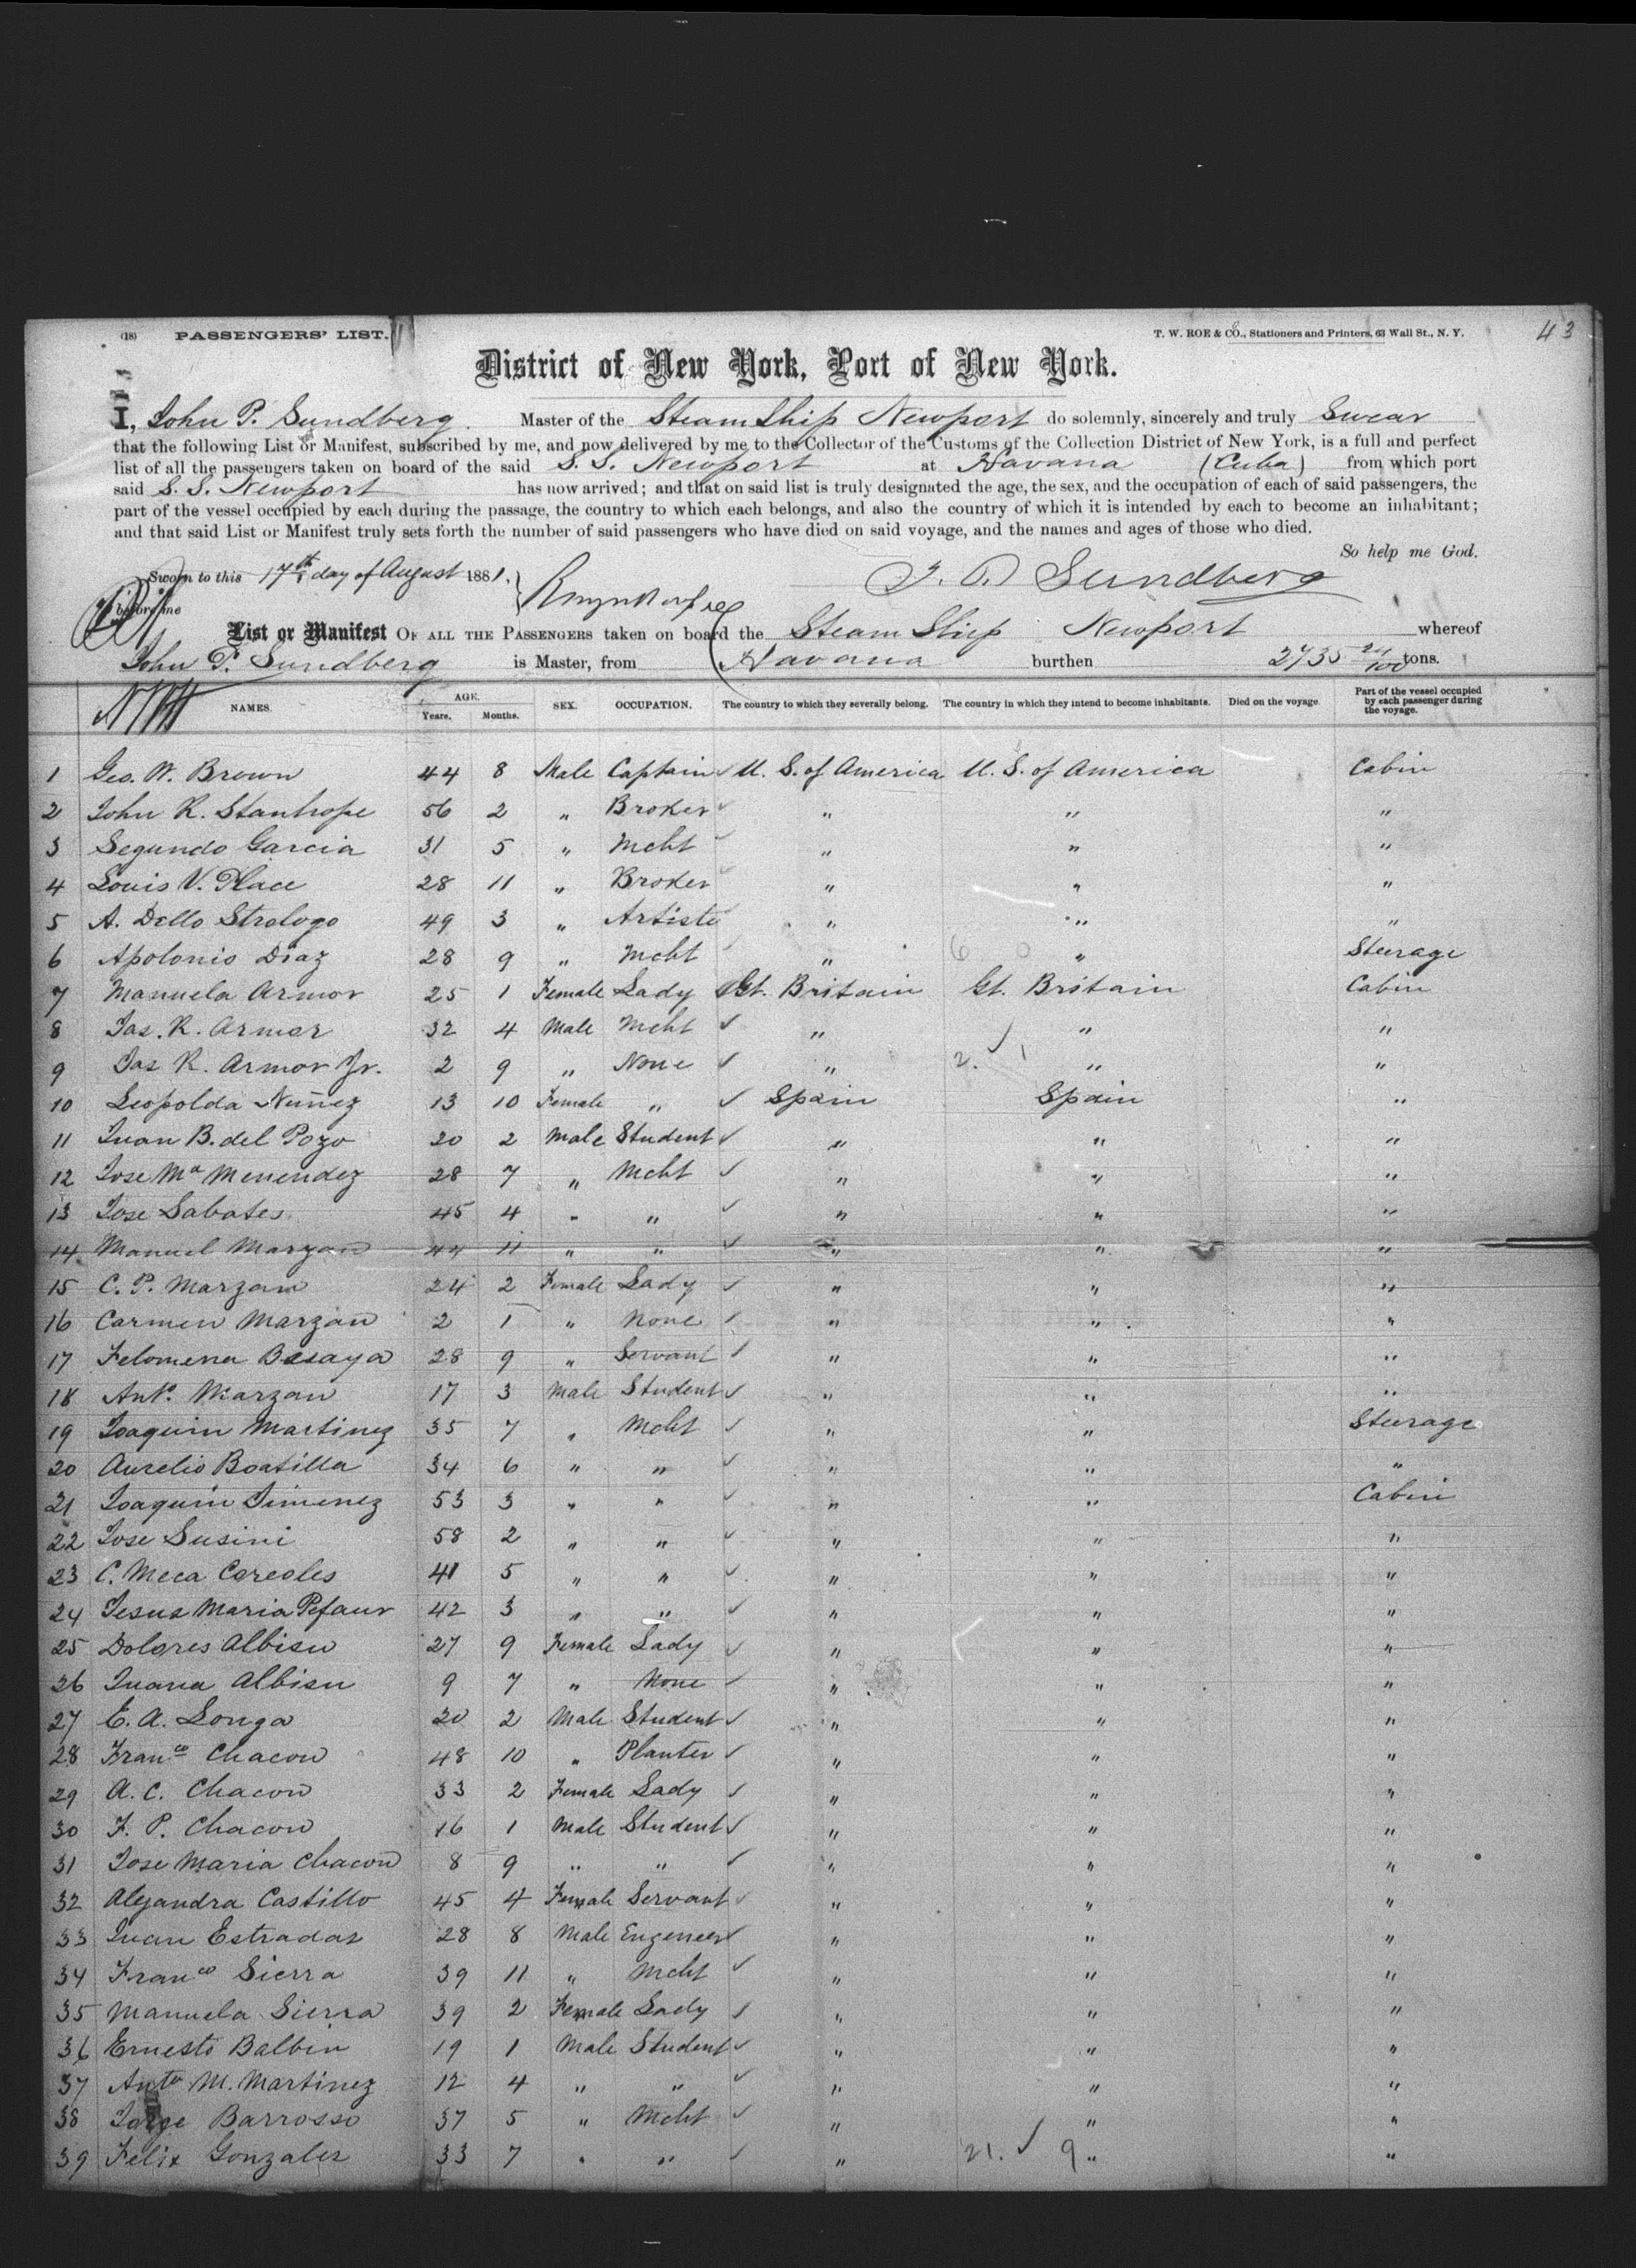 (18) PASSENGERS' LIST. T. W. ROE & CO., Stationers and Printers, 63 Wall St., N. Y. 43
District of New York, Port of New York.
I, John P. Sundberg. Master of the SteamShip Newport do solemnly, sincerely and truly Swear
that the following List or Manifest, subscribed by me, and now delivered by me to the Collector of the Customs of the Collection District of New York, is a full and perfect
list of all the passengers taken on board of the said S. S. Newport at Havana (Cuba) from which port
said S. S. Newport has now arrived; and that on said list is truly designated the age, the sex, and the occupation of each of said passengers, the
part of the vessel occupied by each during the passage, the country to which each belongs, and also the country of which it is intended by each to become an inhabitant;
and that said List or Manifest truly sets forth the number of said passengers who have died on said voyage, and the names and ages of those who died.
So help me God.
Sworn to this 17th day of August 1881, J. P. Sundberg
before me
List or Manifest OF ALL THE PASSENGERS taken on board the SteamShip Newport whereof
John P. Sundberg is Master, from Havana burthen 2735 24/100 tons.
NAMES. AGE. Years. Months. SEX. OCCUPATION. The country to which they severally belong. The country in which they intend to become inhabitants. Died on the voyage Part of the vessel occupied by each passenger during the voyage.
1 Geo. W. Brown 44 8 Male Captain ✓ U. S. of America U. S. of America Cabin
2 John R. Stanhope 56 2 " Broker ✓ " " "
3 Segundo Garcia 31 5 " Mcht ✓ " " "
4 Louis V. Place 28 11 " Broker ✓ " " "
5 A. Dello Strologo 49 3 " Artiste " " "
6 Apolonio Diaz 28 9 " Mcht ✓ " 6 0 " Steerage
7 Manuela Armor 25 1 Female Lady Gt. Britain Gt. Britain Cabin
8 Jas. R. Armor 32 4 Male Mcht ✓ " " "
9 Jas R. Armor Jr. 2 9 " None ✓ " 2. ✓ 1 " "
10 Leopolda Nuñez 13 10 Female " ✓ Spain Spain "
11 Juan B. del Pozo 20 2 Male Student ✓ " " "
12 Jose Ma Menendez 28 7 " Mcht ✓ " " "
13 Jose Sabates 45 4 " " ✓ " " "
14 Manuel Marzan 44 11 " " ✓ " " "
15 C. P. Marzan 24 2 Female Lady ✓ " " "
16 Carmen Marzan 2 1 " None ✓ " " "
17 Felomena Besaya 28 9 " Servant ✓ " " "
18 Anto. Marzan 17 3 Male Student ✓ " " "
19 Joaquin Martinez 35 7 " Mcht ✓ " " Steerage
20 Aurelio Boatilla 34 6 " " ✓ " " "
21 Joaquin Jimenez 53 3 " " ✓ " " Cabin
22 Jose Susini 58 2 " " ✓ " " "
23 C. Meca Coreoles 41 5 " " ✓ " " "
24 Jesus Maria Pefaur 42 3 " " ✓ " " "
25 Dolores Albisu 27 9 Female Lady ✓ " " "
26 Juana Albisu 9 7 " None ✓ " " "
27 E. A. Longa 20 2 Male Student ✓ " " "
28 Franco Chacon 48 10 " Planter ✓ " " "
29 A. C. Chacon 33 2 Female Lady ✓ " " "
30 F. P. Chacon 16 1 Male Student ✓ " " "
31 Jose Maria Chacon 8 9 " " ✓ " " "
32 Alejandra Castillo 45 4 Female Servant ✓ " " "
33 Juan Estradas 28 8 Male Engeneer ✓ " " "
34 Franco Sierra 39 11 " Mcht ✓ " " "
35 Manuela Sierra 39 2 Female Lady ✓ " " "
36 Ernesto Balbin 19 1 Male Student ✓ " " "
37 Anto M. Martinez 12 4 " " ✓ " " "
38 Jorge Barrosso 37 5 " Mcht ✓ " " "
39 Felix Gonzales 33 7 " " ✓ " 21. ✓ 9 " "